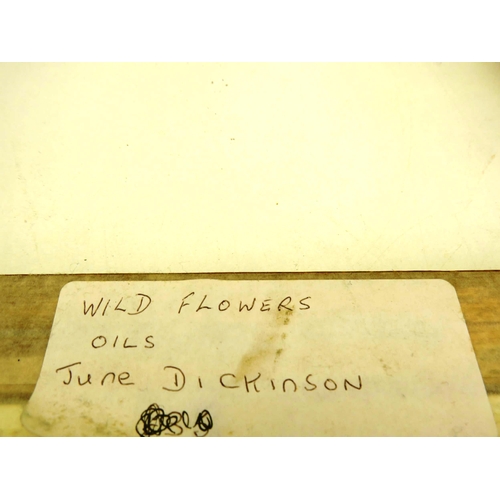 WILD FLOWERS
OILS
June DICKINSON